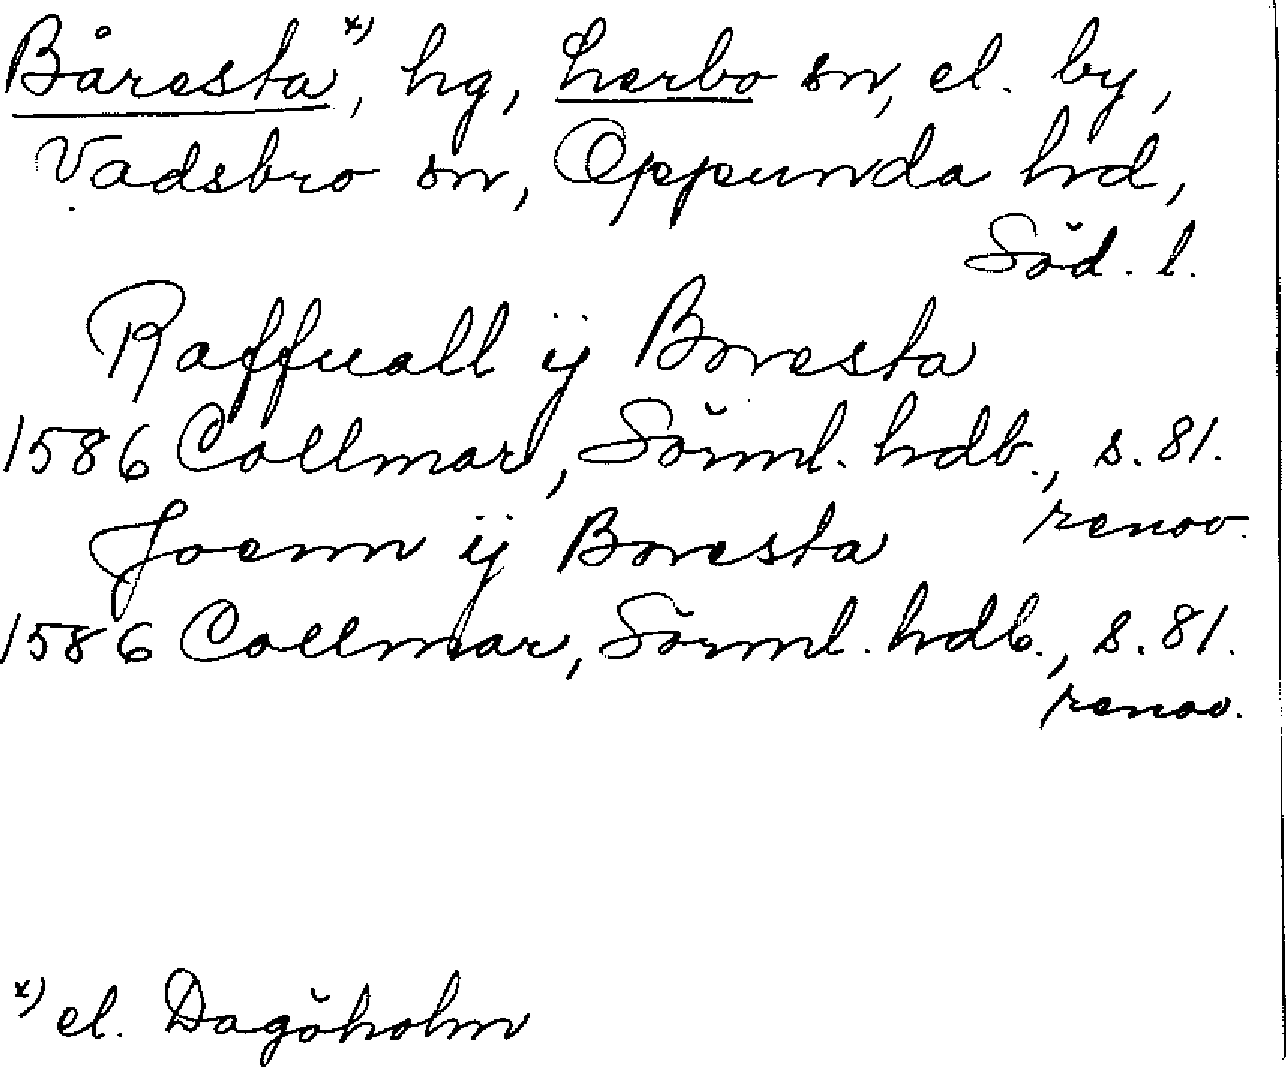 Båresta x), hg, Lerbo sn, el. by,
Vadsbro sn, Oppunda hd,
Söd. l.
Raffuall ÿ Boresta
1586 Collmar, Sörml. hdb., s. 81.
renov.
Joenn ÿ Boresta
1586 Collmar, Sörml. hdb., s. 81.
renov.
x) el. Dagöholm